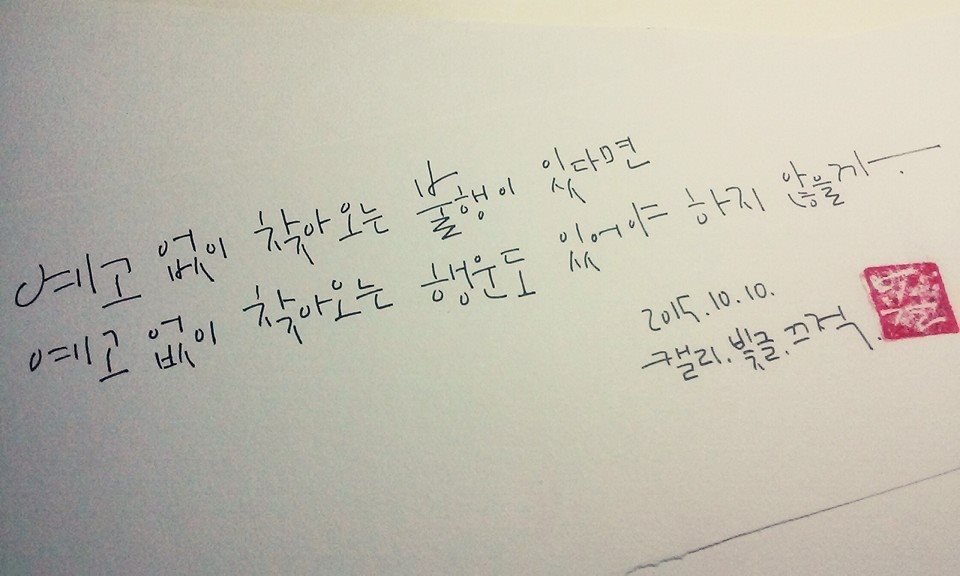 예고 없이 찾아오는 불행이 있다면
예고 없이 찾아오는 행운도 있어야 하지 않을까.
2015.10.10.
캘리.빛글.끄적.